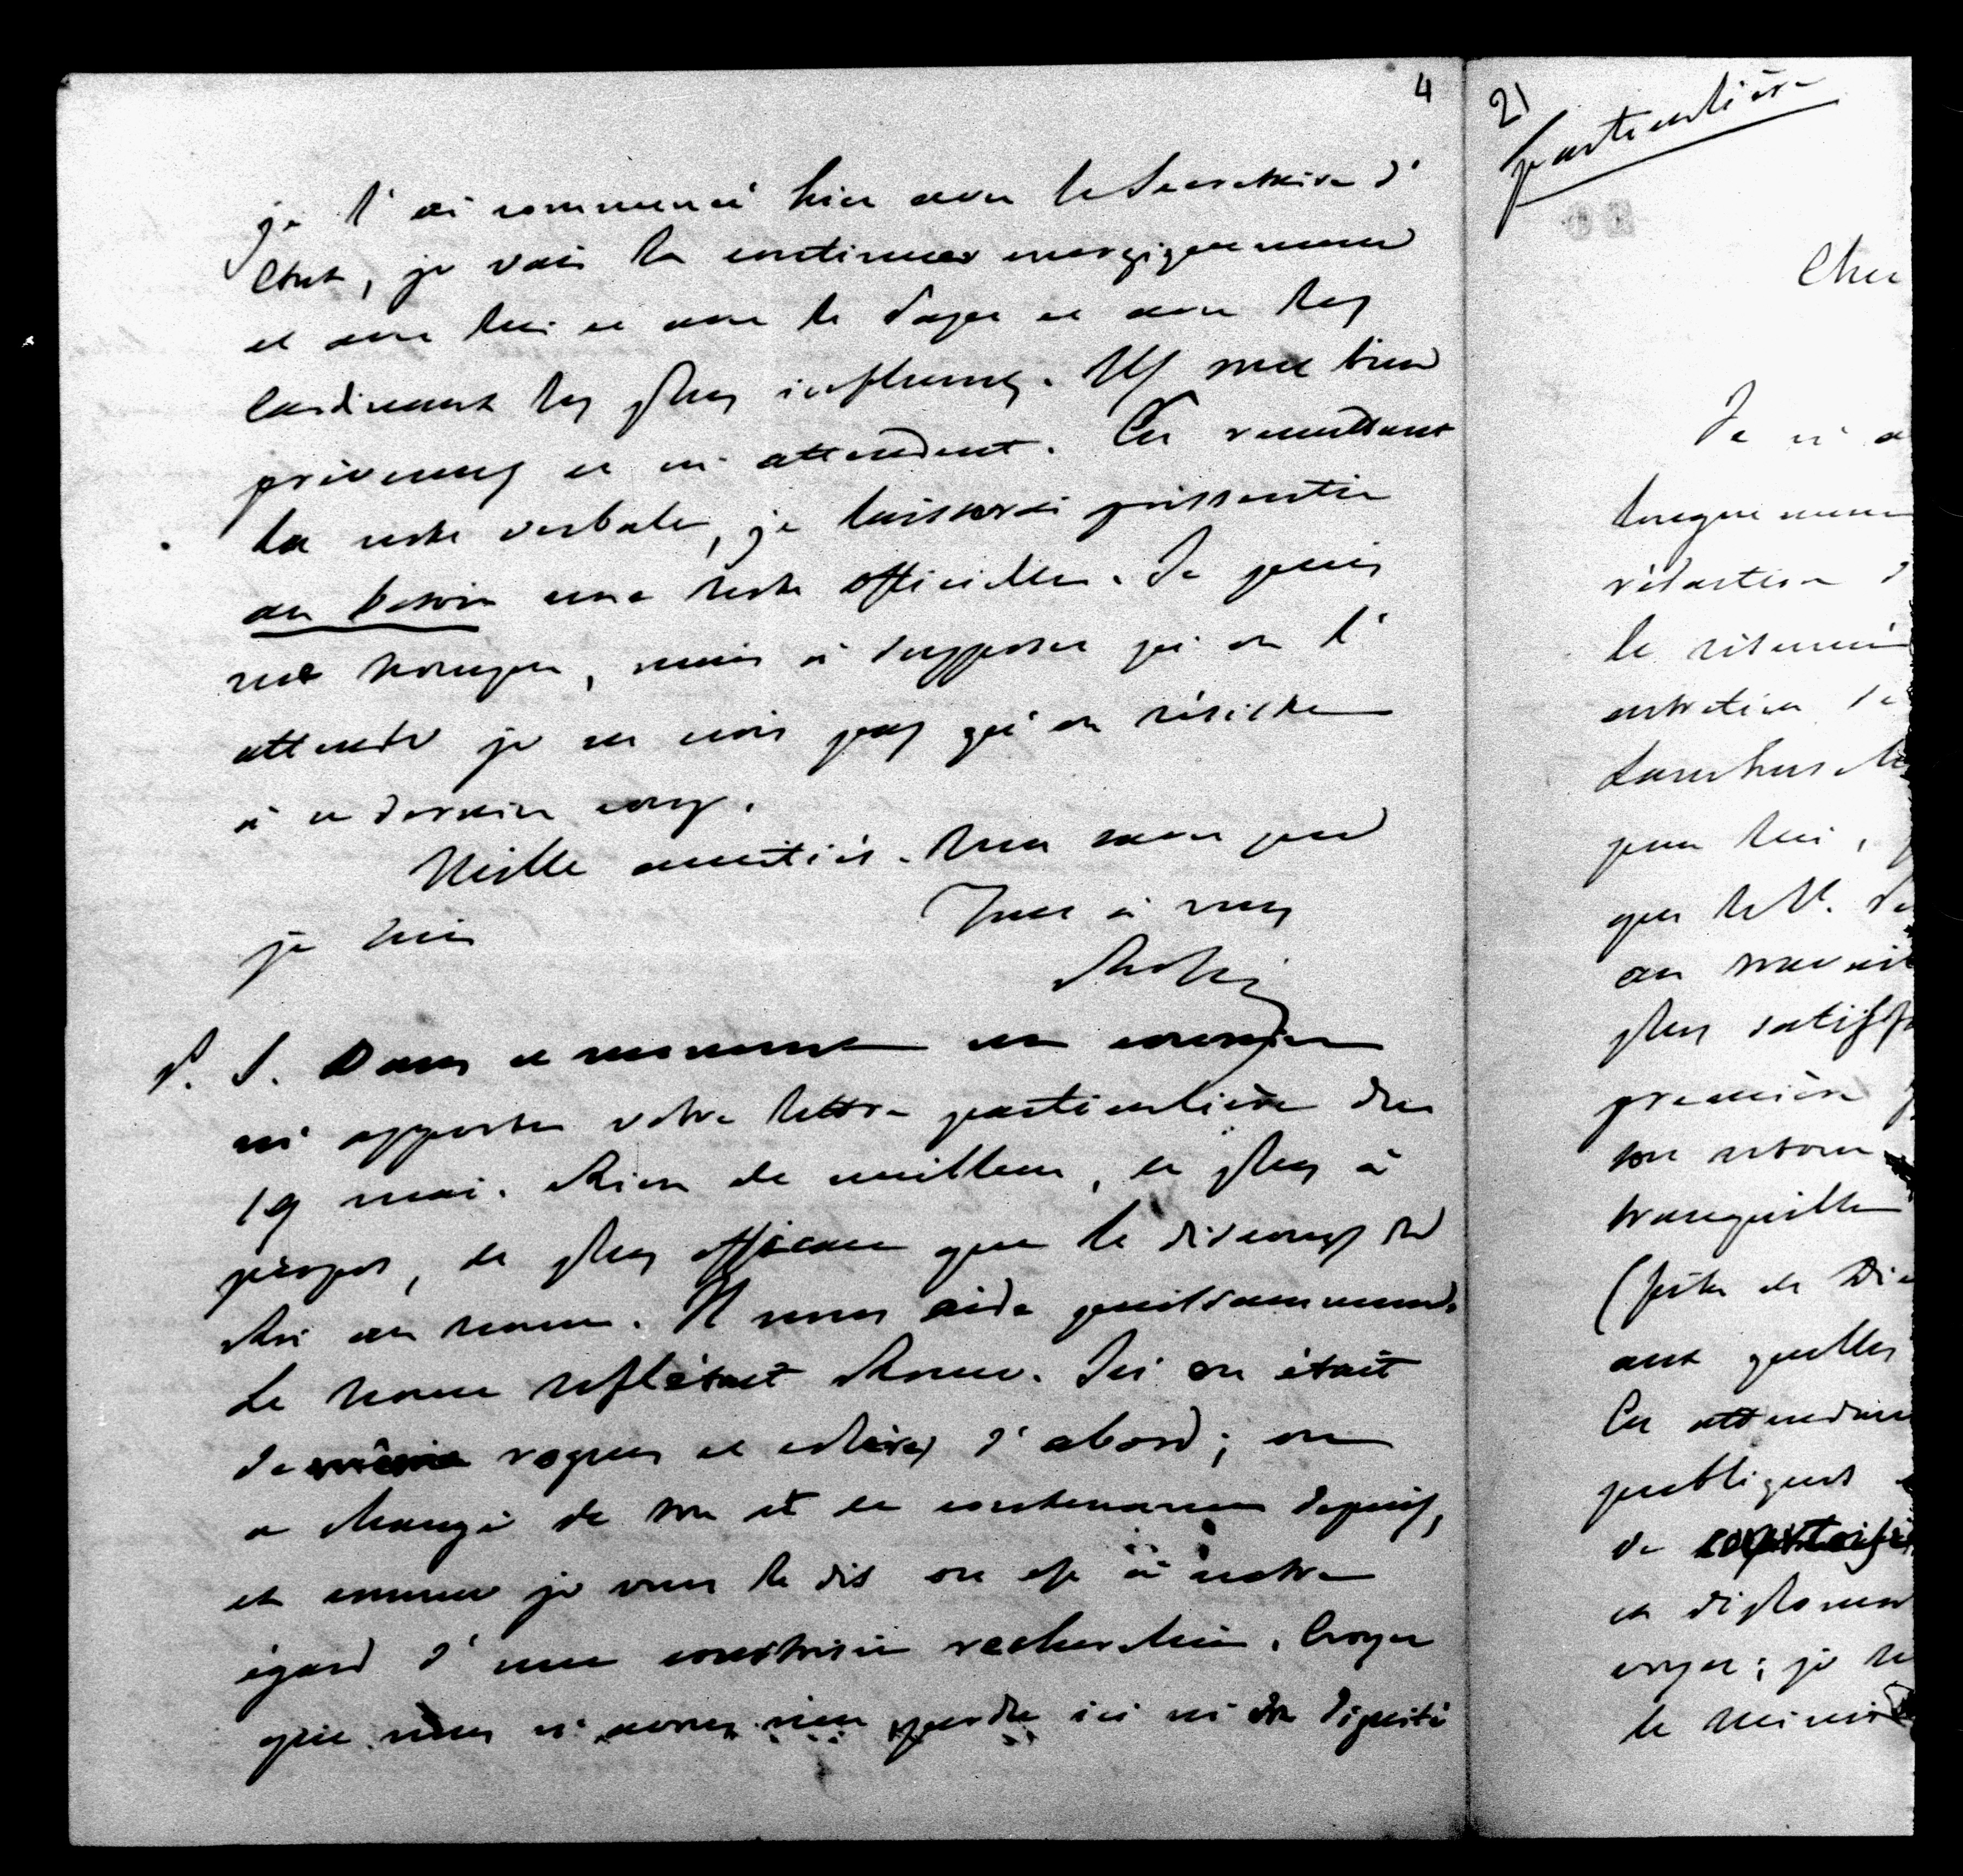 4
je l'ai commencé hier avec le Secrétaire d'
Etat, je vais la continuer énergiquement
et avec lui et avec le Pape et avec les
Cardinaux les plus influens. Ils sont bien
prévenus et m'attendent. En remettant
la note verbale, je laisserai pressentir
au besoin une note officielle. Je puis
me tromper, mais à supposer qu'on l'
attende je ne crois pas qu'on résiste
à ce dernier coup.
Mille amitiés. Tout mon pied
je suis Tout à vous
P. S. Dans ce moment un courrier
m'apporte votre lettre particulière du
19 mai. Rien de meilleur, de plus à
propos, de plus efficace que le discours du
Roi au nonce. Il nous aide puissamment.
Le nonce reflétait Rome. Ici on était
de même rogues et colères d'abord; on
a changé de ton et de contenance depuis,
et comme je vous le dis on est à notre
égard d'une courtoisie recherchée. Croyez
que nous n'avons rien perdu ici ni en dignité
2)
particulière
Cher
Je n'a
longuement
rédaction d
le résumé
entretien de
Lambrusch
pour lui,
que le St. Pè
au mauvais
plus satisf
première
son retour
tranquille
(fête de Di
aux quelles
En attendan
publiques
de courtoisie
et diplomat
corps; je
le minist